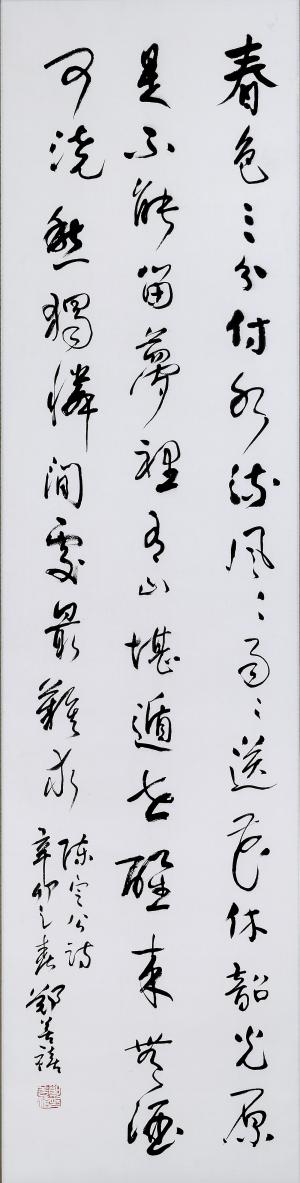 春色三分付水流風風雨雨送花休韶光原
是不能留夢裡有山堪遁世醒來無酒
可澆愁獨憐閒處最難求
陳定公詩
辛卯之春 鄭善禧